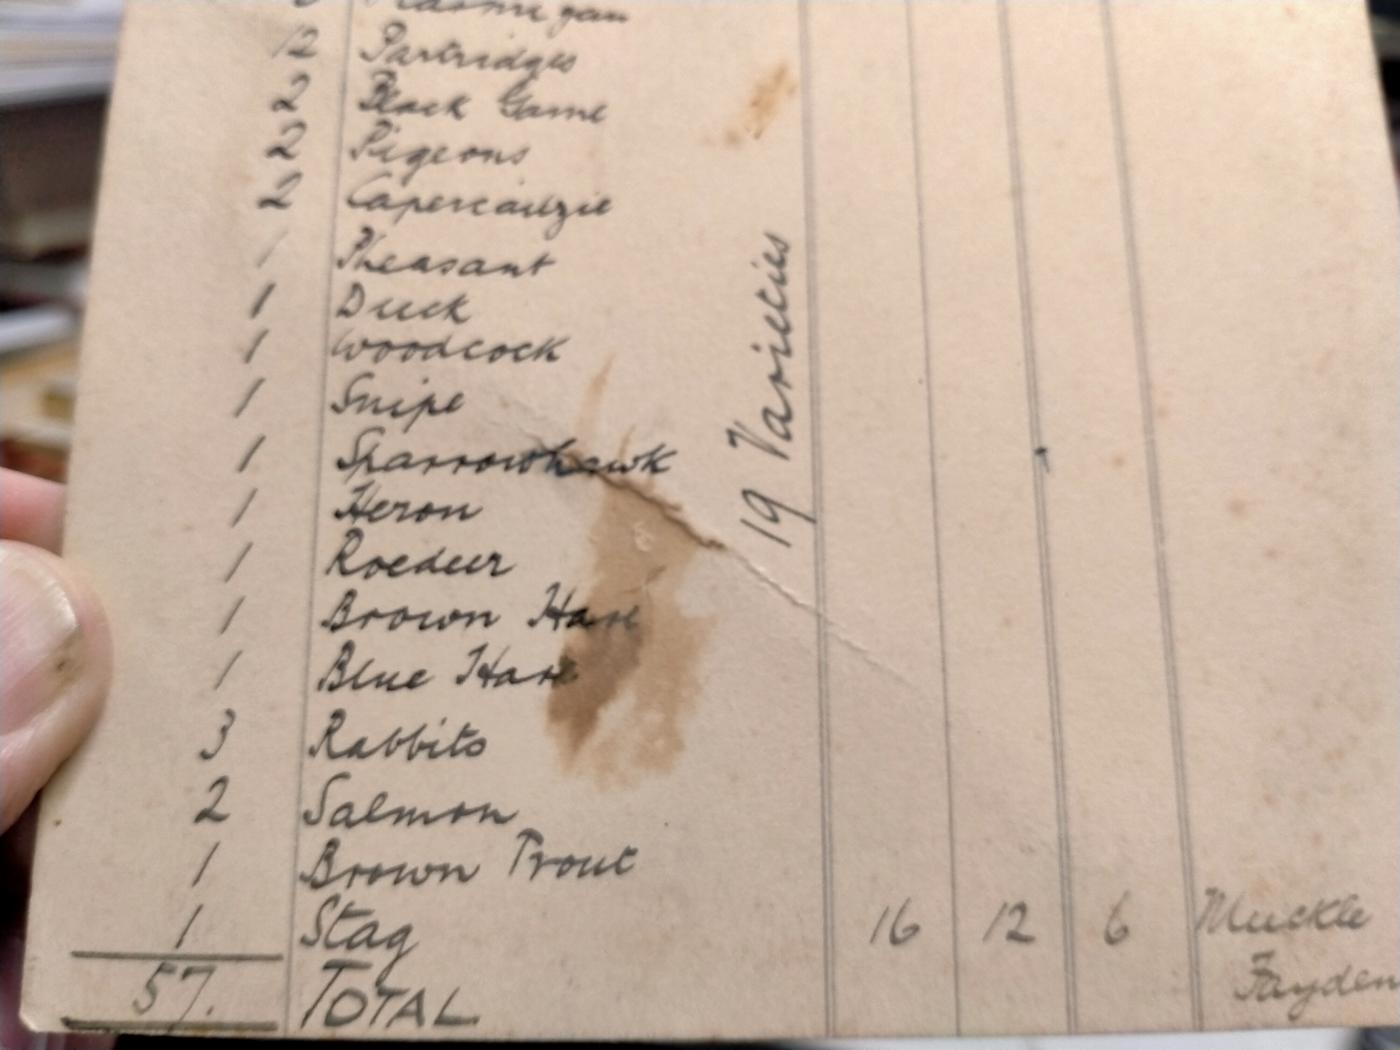 12 Partridges
2 Black Game
2 Pigeons
2 Capercailzie
1 Pheasant
1 Duck
1 Woodcock
1 Snipe
1 Sparrowhawk
1 Heron
1 Roedeer
1 Brown Hare
1 Blue Hare
3 Rabbits
2 Salmon
1 Brown Trout
1 Stag 16 12 6 Muckle
Fayden
57. TOTAL
19 Varieties